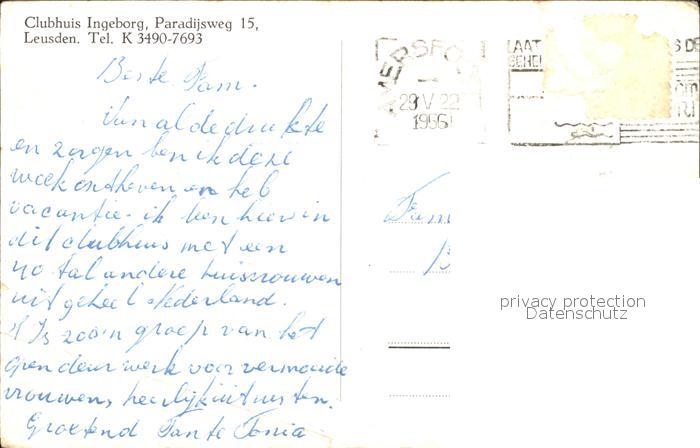 Clubhuis Ingeborg, Paradijsweg 15,
Leusden. Tel. K 3490-7693
Beste Fam.
Van al de drukte
en zorgen ben ik deze
week ontheven en heb
vacantie. ik ben hier in
dit clubhuis met een
40 tal andere huisvrouwen
uit geheel Nederland.
't Is zoo'n groep van het
open deur werk voor vermoeide
vrouwen, heerlijk uitrusten.
Groetend Tante Tonia
AMERSFO
29 V 22
1966
LAAT
S DE
Fam
B
privacy protection
Datenschutz